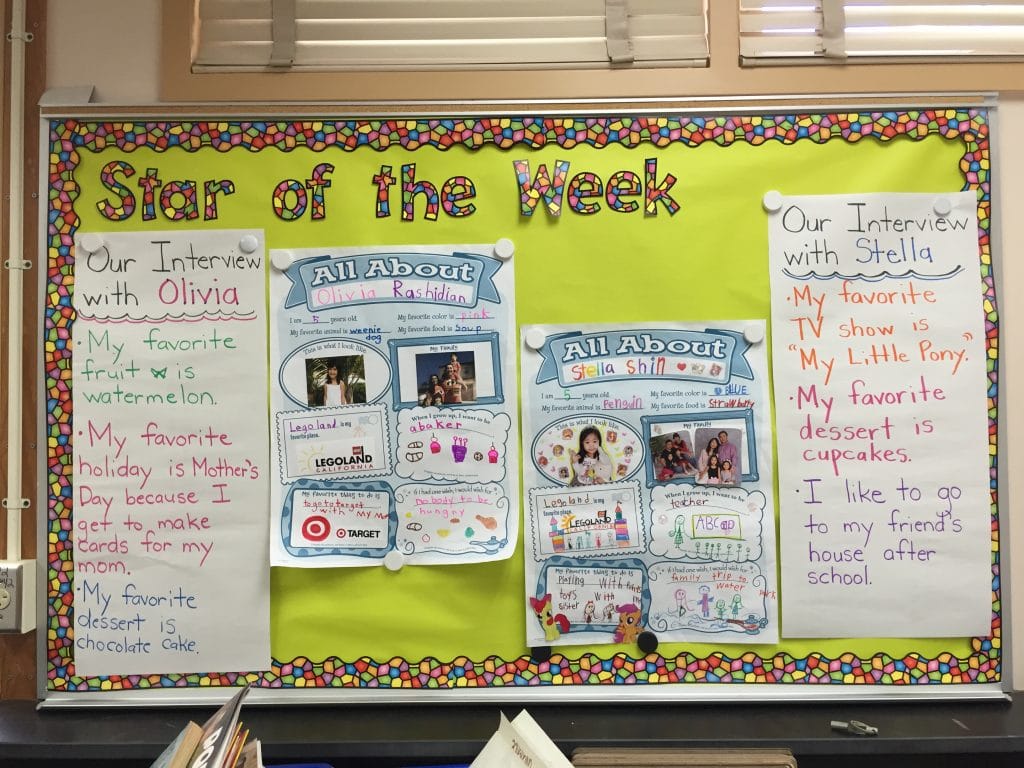 Star of the Week
Our Interview
with Olivia
·My favorite
fruit is
watermelon.
·My
favorite
holiday is Mother's
Day because I
get to make
cards for my
mom.
·My favorite
dessert is
chocolate cake.
All About
Olivia Rashidian
I am 5 years old.
My favorite color is pink
My favorite animal is weenie
dog
My favorite food is Soup
This is what I look like.
My Family
Legoland is my
favorite place.
LEGO
LEGOLAND
CALIFORNIA
When I grow up, I want to be
abaker
My favorite thing to do is
to go to target
with my
TARGET
If I had one wish, I would wish for
nobody to be
hungry
All About
Stella Shin
I am 5 years old.
My favorite color is BLUE
My favorite animal is Penguin
My favorite food is
This is what I look like.
My Family
Legoland is my
favorite place.
LEGOLAND
When I grow up, I want to be
teacher
My favorite thing to do is
Playing with
toys with my
sister
If I had one wish, I would wish for
family trip to
water park
Our Interview
with Stella
·My favorite
TV show is
"My Little Pony."
·My favorite
dessert is
cupcakes.
·I like to go
to my friend's
house after
school.